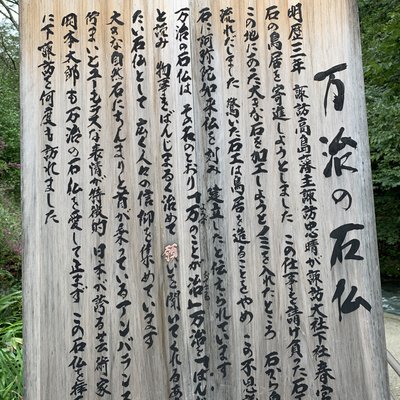 万治の石仏
明暦三年 諏訪高島藩主諏訪忠晴が諏訪大社下社 春宮
石の鳥居を寄進しようとしました この仕事を請け負った石
この地にあった大きな石を加工しようとノミを入れたところ 石から
流れだしました 驚いた石工は鳥居を造ることをやめ この不思
石に阿弥陀如来仏を刻み 建立したと伝えられています
万治の石仏は その名のとおり「万のことが治」万治「ばん
と読み 物事をばんじまるく治めて 願いを聞いてくれるあ
たい石仏として 広く人々の信仰を集めています
大きな自然石にちんまりと首が乗っているアンバランス
佇まいとユーモラスな表情が特徴的 日本が誇る芸術家
岡本太郎も万治の石仏を愛して止まず この石仏を拝
に下諏訪を何度も訪れました